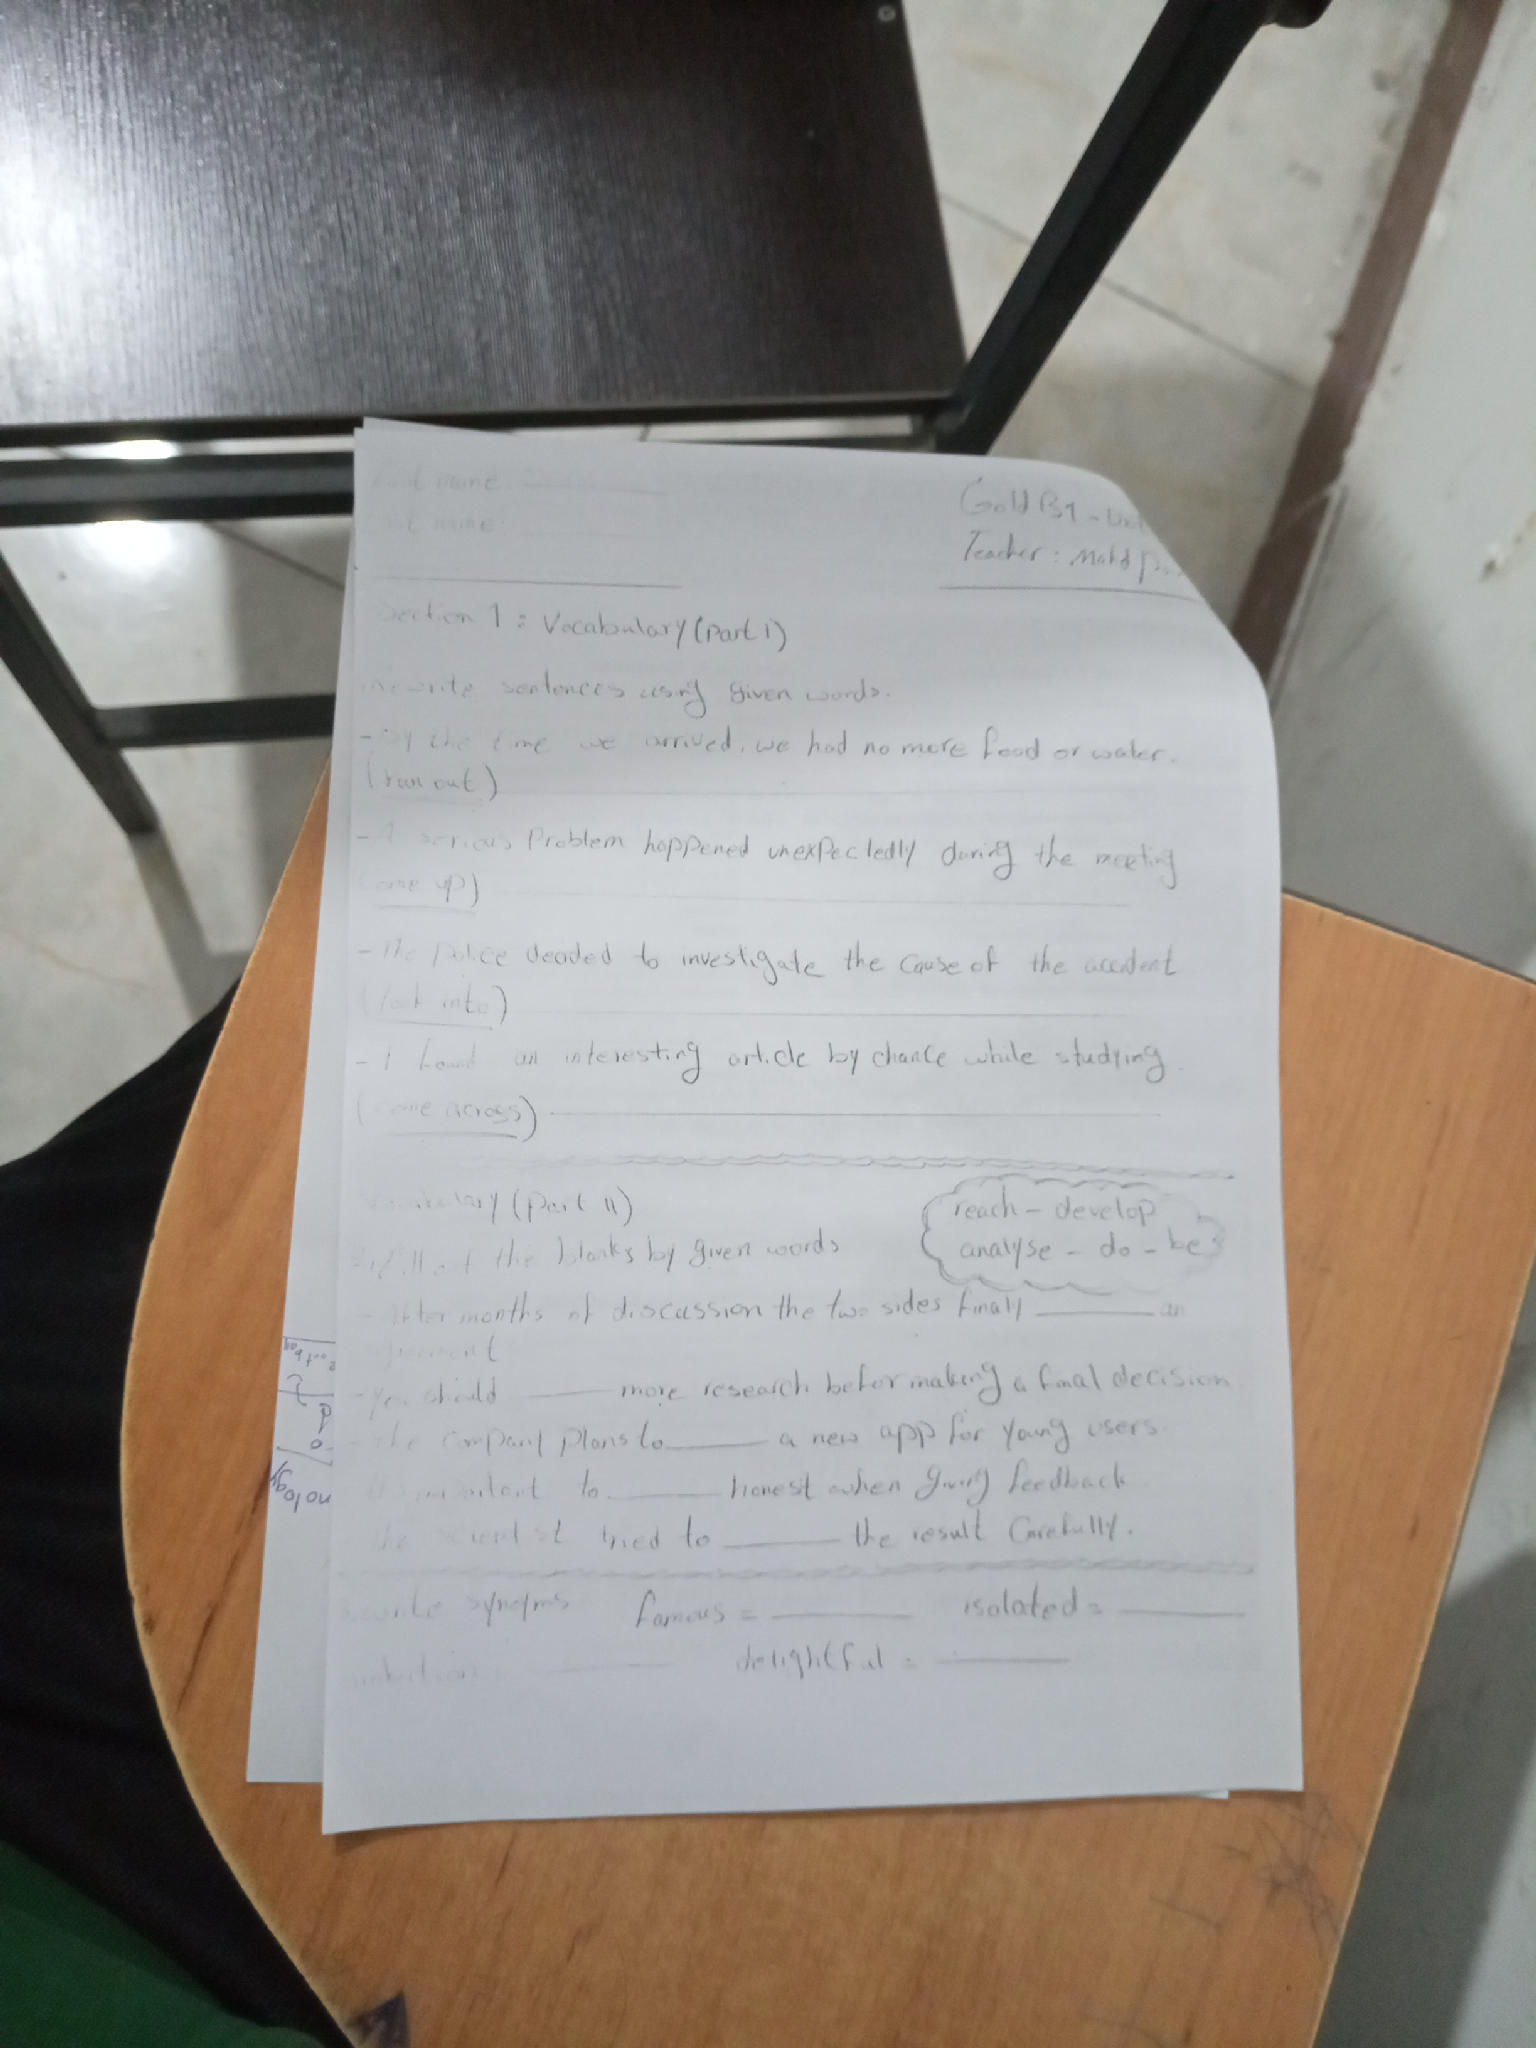 name
name
Gold B1 - 
Teacher : Mohd
Section 1 : Vocabulary (Part I)
Rewrite sentences using given words.
- By the time we arrived, we had no more food or water.
(run out)
- A serious Problem happened unexpectedly during the meeting
come up)
- The Police decided to investigate the cause of the accident
(look into)
- I found an interesting article by chance while studying.
(come across)
Vocabulary (Part II)
reach - develop
analyse - do - be
fill out the blanks by given words
- After months of discussion the two sides finally ______ an
agreement
- you should ______ more research befor making a final decision
- the company plans to ______ a new app for young users.
important to ______ honest when giving feedback
the scientist tried to ______ the result Carefully.
write synoyms famous = ______ isolated = ______
ambition = ______ delightful = ______
nology